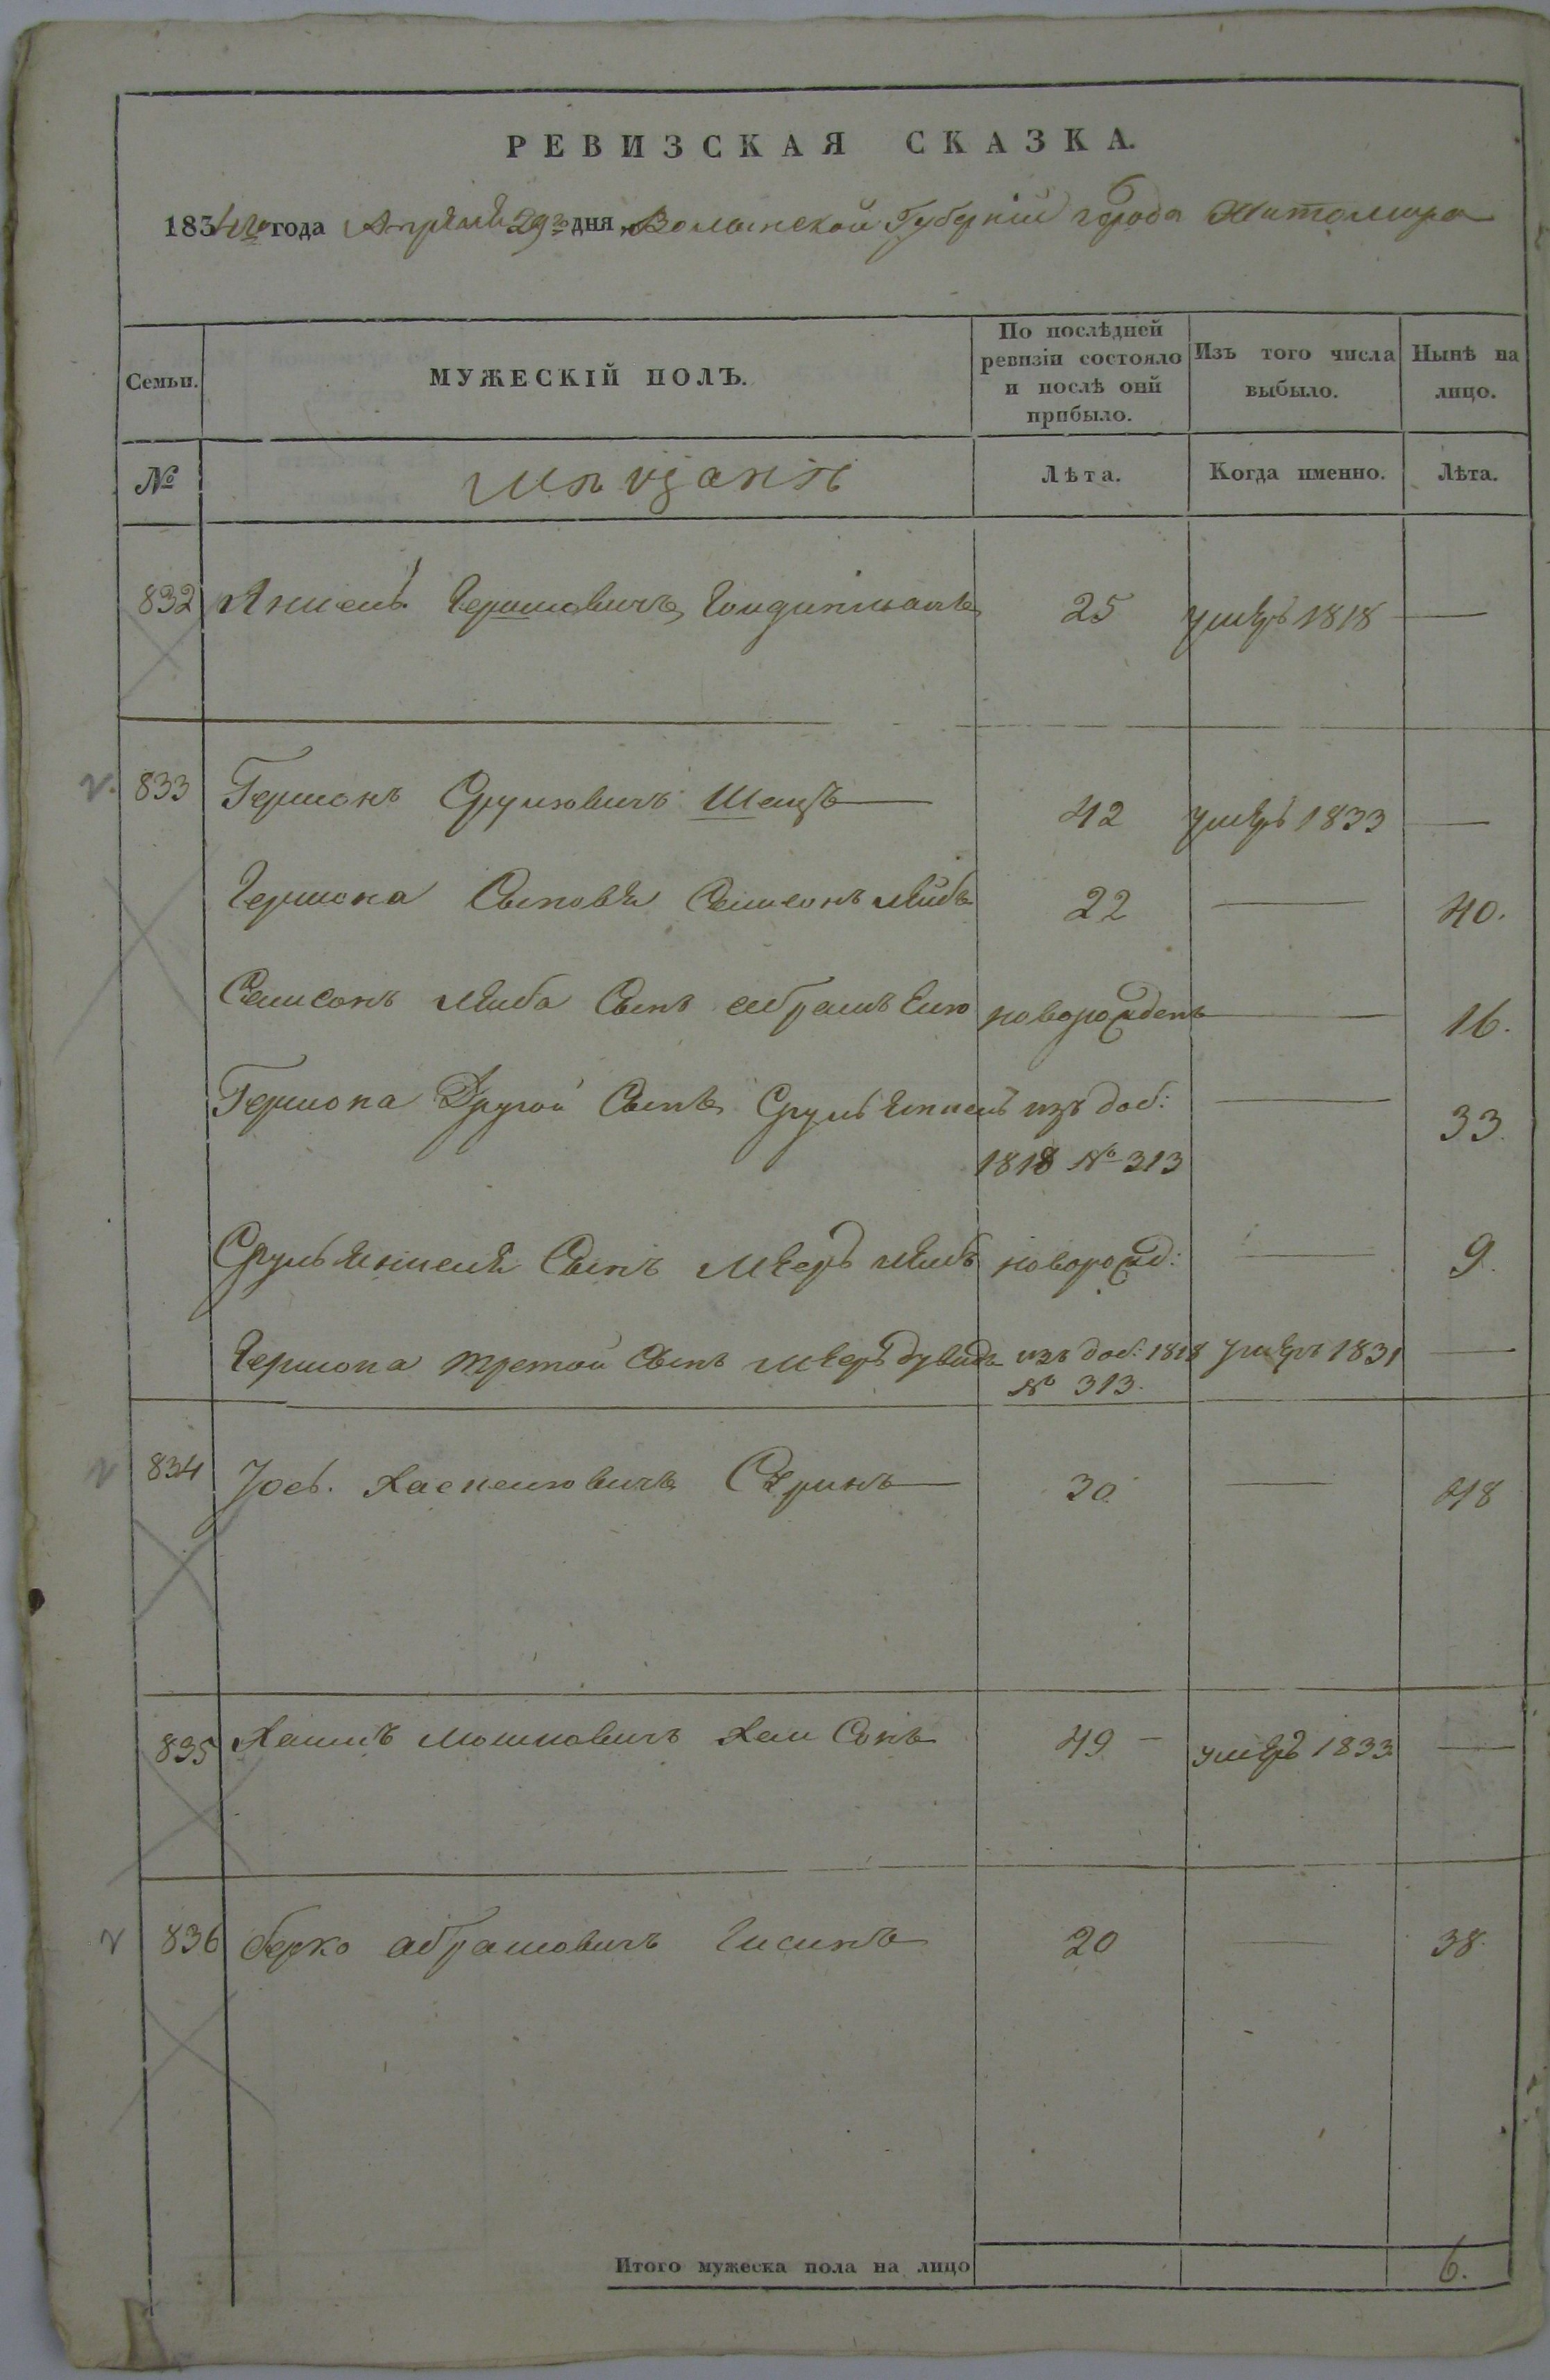 РЕВИЗСКАЯ СКАЗКА.
1834го года Апреля 29го дня, Волынской Губерніи города Житомира
Семьи. МУЖЕСКІЙ ПОЛЪ. По послѣдней ревизіи состояло и послѣ оній прибыло. Изъ того числа выбыло. Нынѣ на лицо.
№ Мѣщанѣ Лѣта. Когда именно. Лѣта.
832 Янкель Гершковичъ 25 умеръ 1818 —
833 Гершонъ Срулювичъ Шацъ 42 умеръ 1833 —
Гершона Сыновя Самсонъ Лейбъ 22 — 40.
Самсонъ Лейба Сынъ Абрамъ новорожденъ — 16.
Гершона Другой Сынъ Сруль Янкель изъ доб: — 33.
1818 № 313
Сруль Янкеля Сынъ Мееръ Лейбъ новорожд: — 9.
Гершона третой Сынъ Мееръ Дувидъ изъ доб: 1818 умеръ 1831 —
№ 313.
834 Іось Хаскелювичъ 30 — 48
835 Хаимъ Мошковичъ 49 — умеръ 1833 —
836 Берко Абрамовичъ 20 — 38.
Итого мужеска пола на лицо 6.